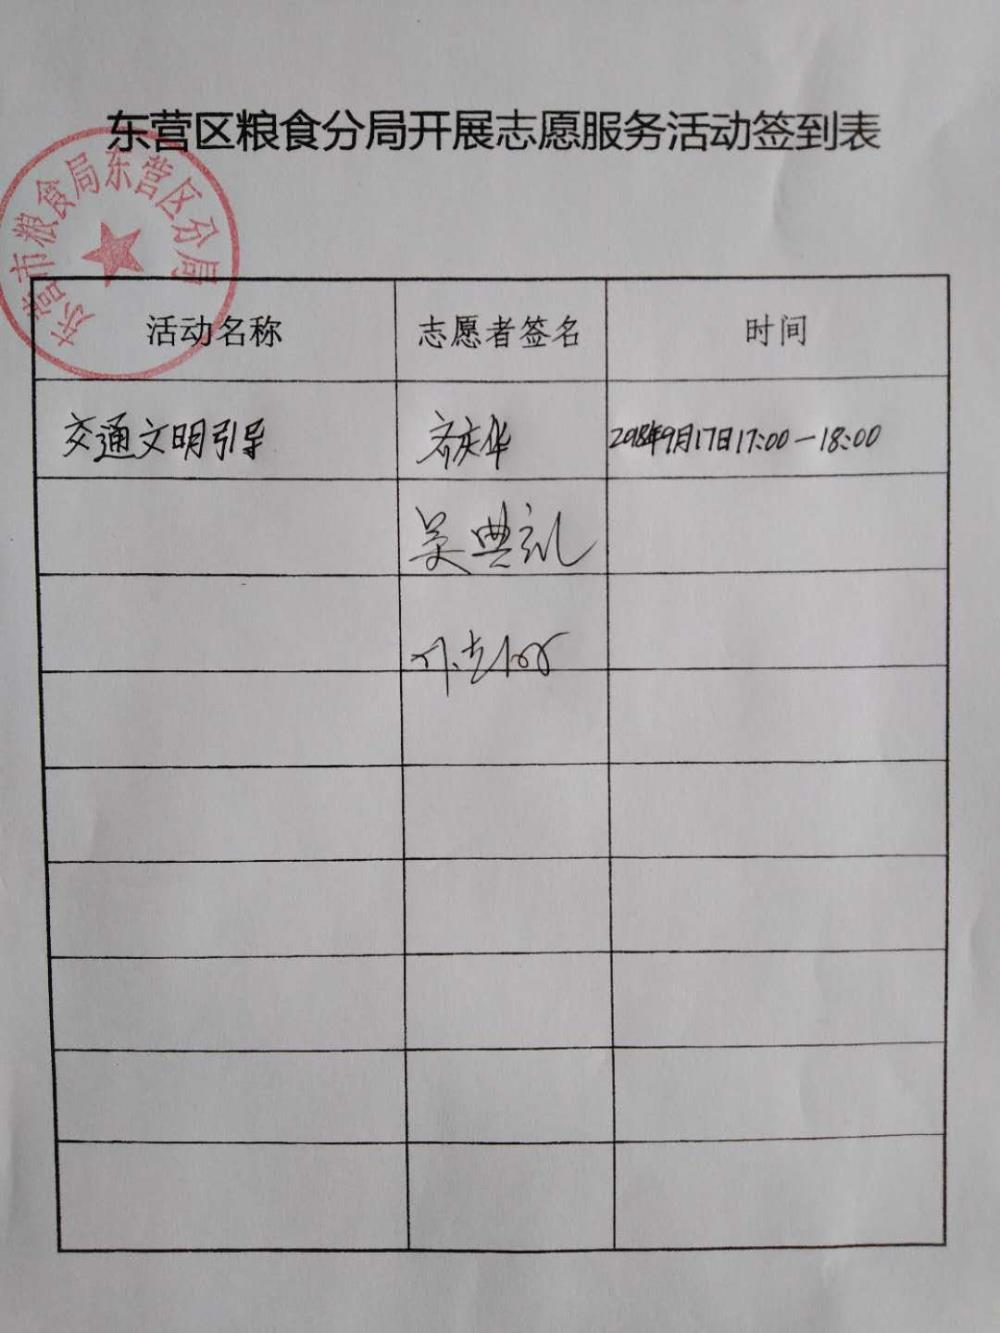 东营区粮食分局开展志愿服务活动签到表
东营市粮食局东营区分局
活动名称 志愿者签名 时间
交通文明引导 齐庆华 2018年9月17日17:00—18:00
吴典礼